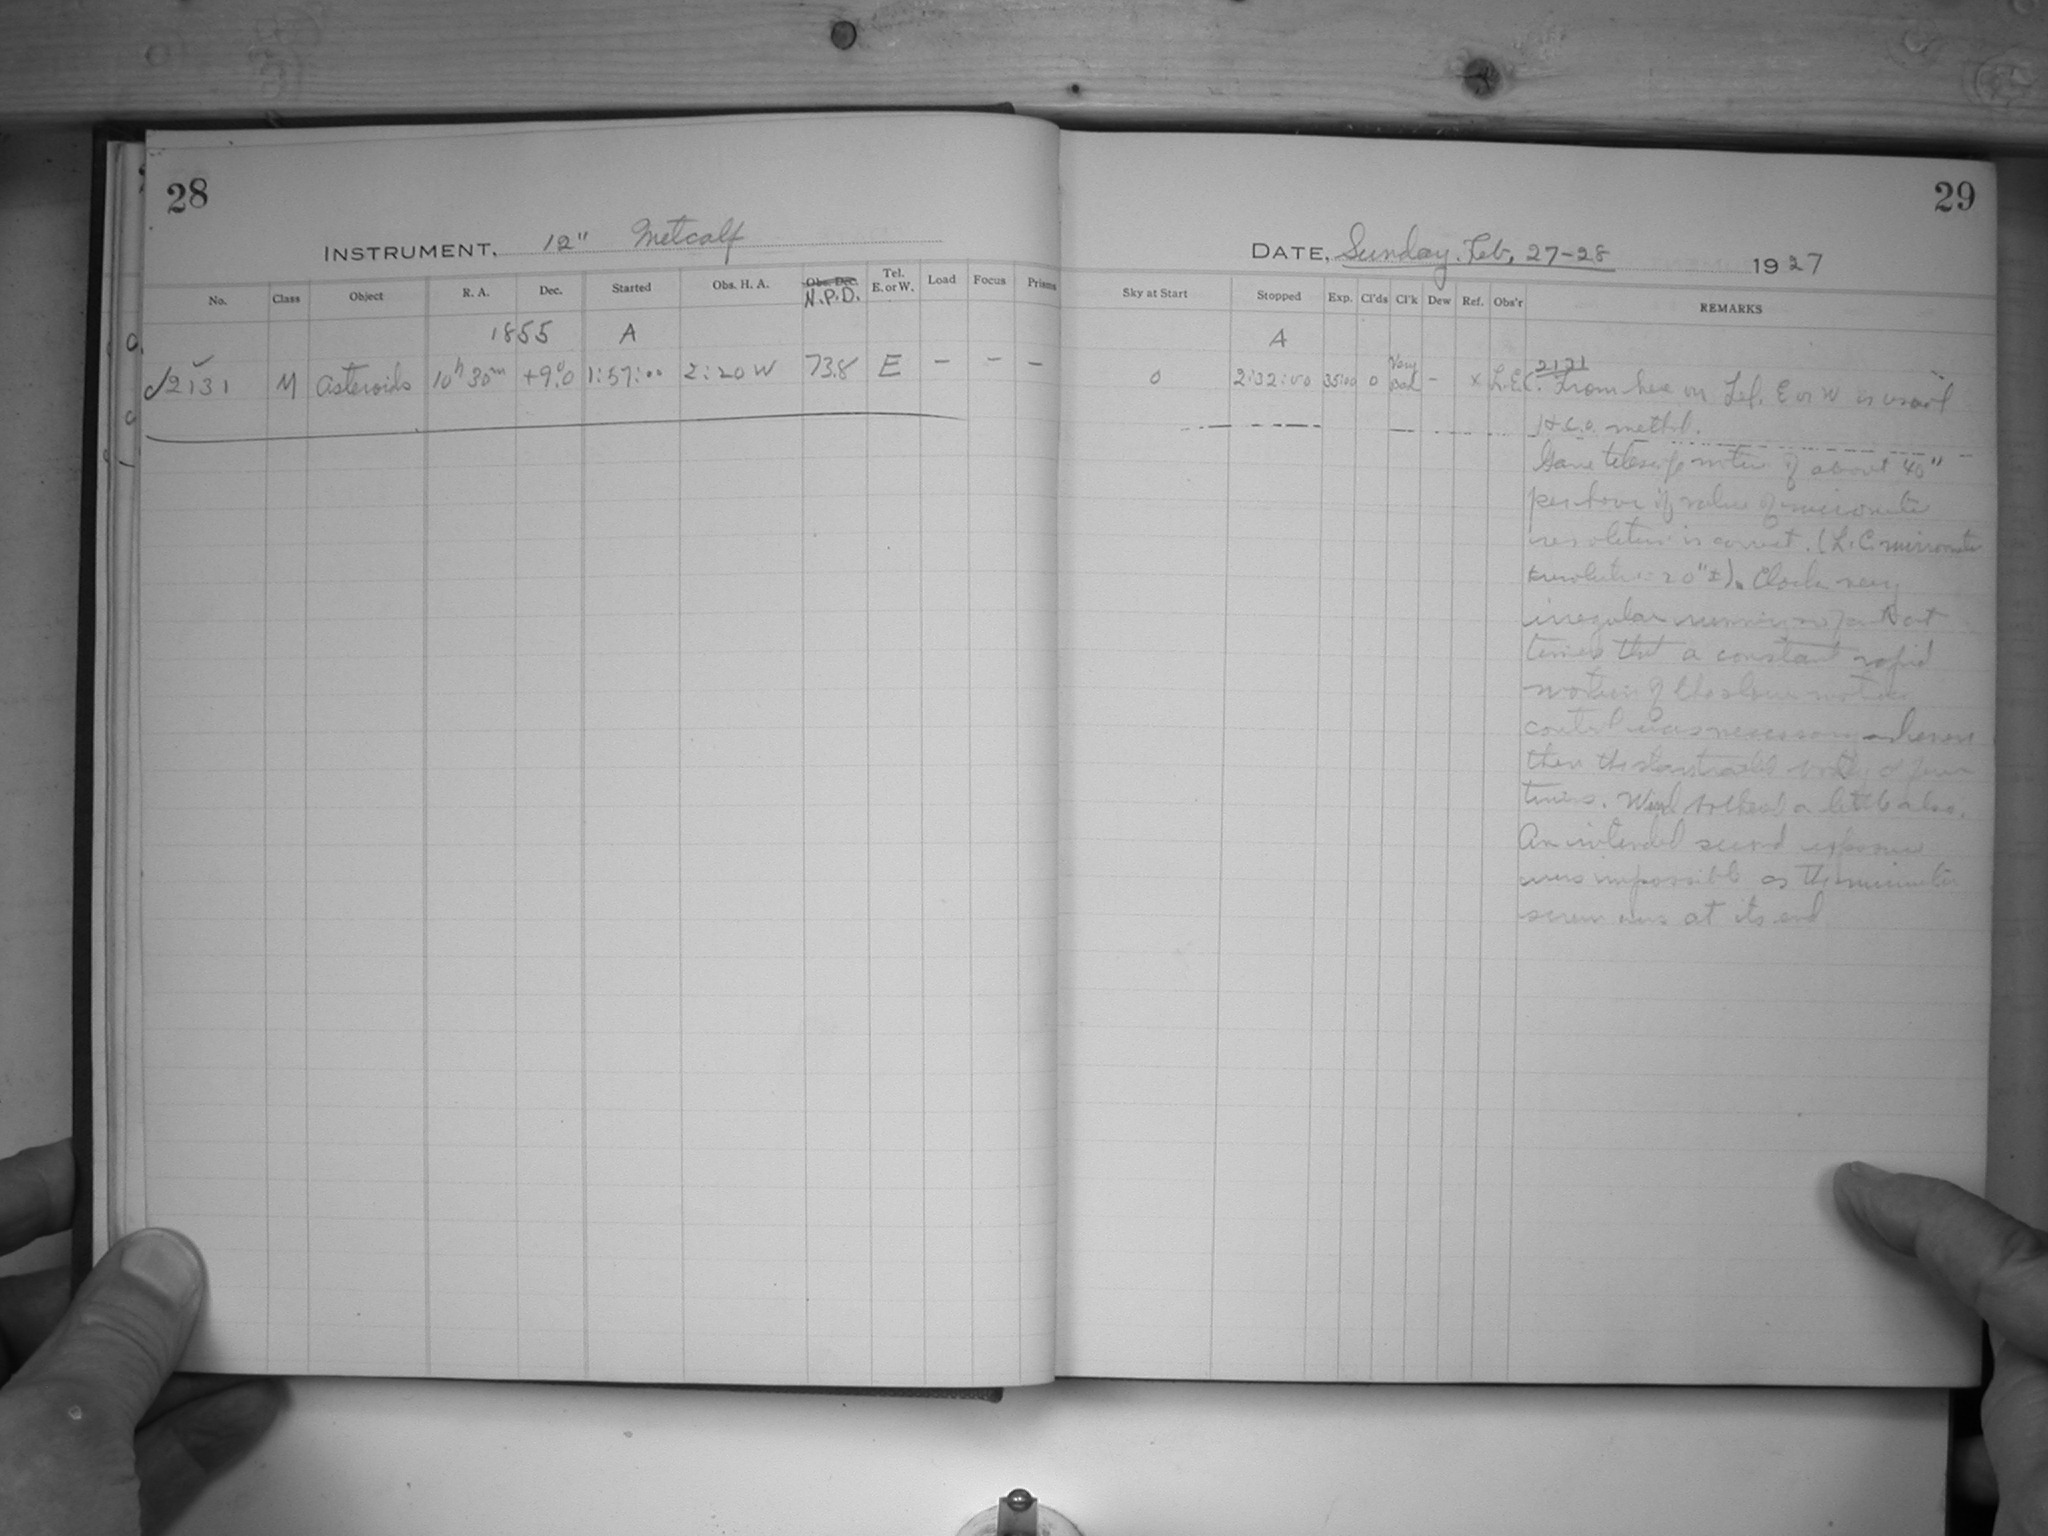 28
INSTRUMENT, 12" Metcalf
No. Class Object R. A. Dec. Started Obs. H. A. Obs. Dec. N.P.D. Tel. E. or W. Load Focus Prisms
1855 A
2131 M Asteroids 10h 30m +9°.0 1:57:00 2:20 W 73.8 E – – –
29
DATE, Sunday. Feb, 27-28 1927
Sky at Start Stopped Exp. Cl'ds Cl'k Dew Ref. Obs'r REMARKS
A
0 2:32:00 35:00 0 Very Bad – x L.E.C. 2131 From here on Tel. E or W is usual
H.C.O. method.
Gave telescope motion of about 40"
per hour if value of micrometer
revolution is correct. (L.C. micrometer
revolution = 20"±). Clock very
irregular running so fast at
times that a constant rapid
motion of the slow motion
control was necessary
then the star
times. Wind a little also.
An intended second exposure
was impossible as the micrometer
screw was at its end